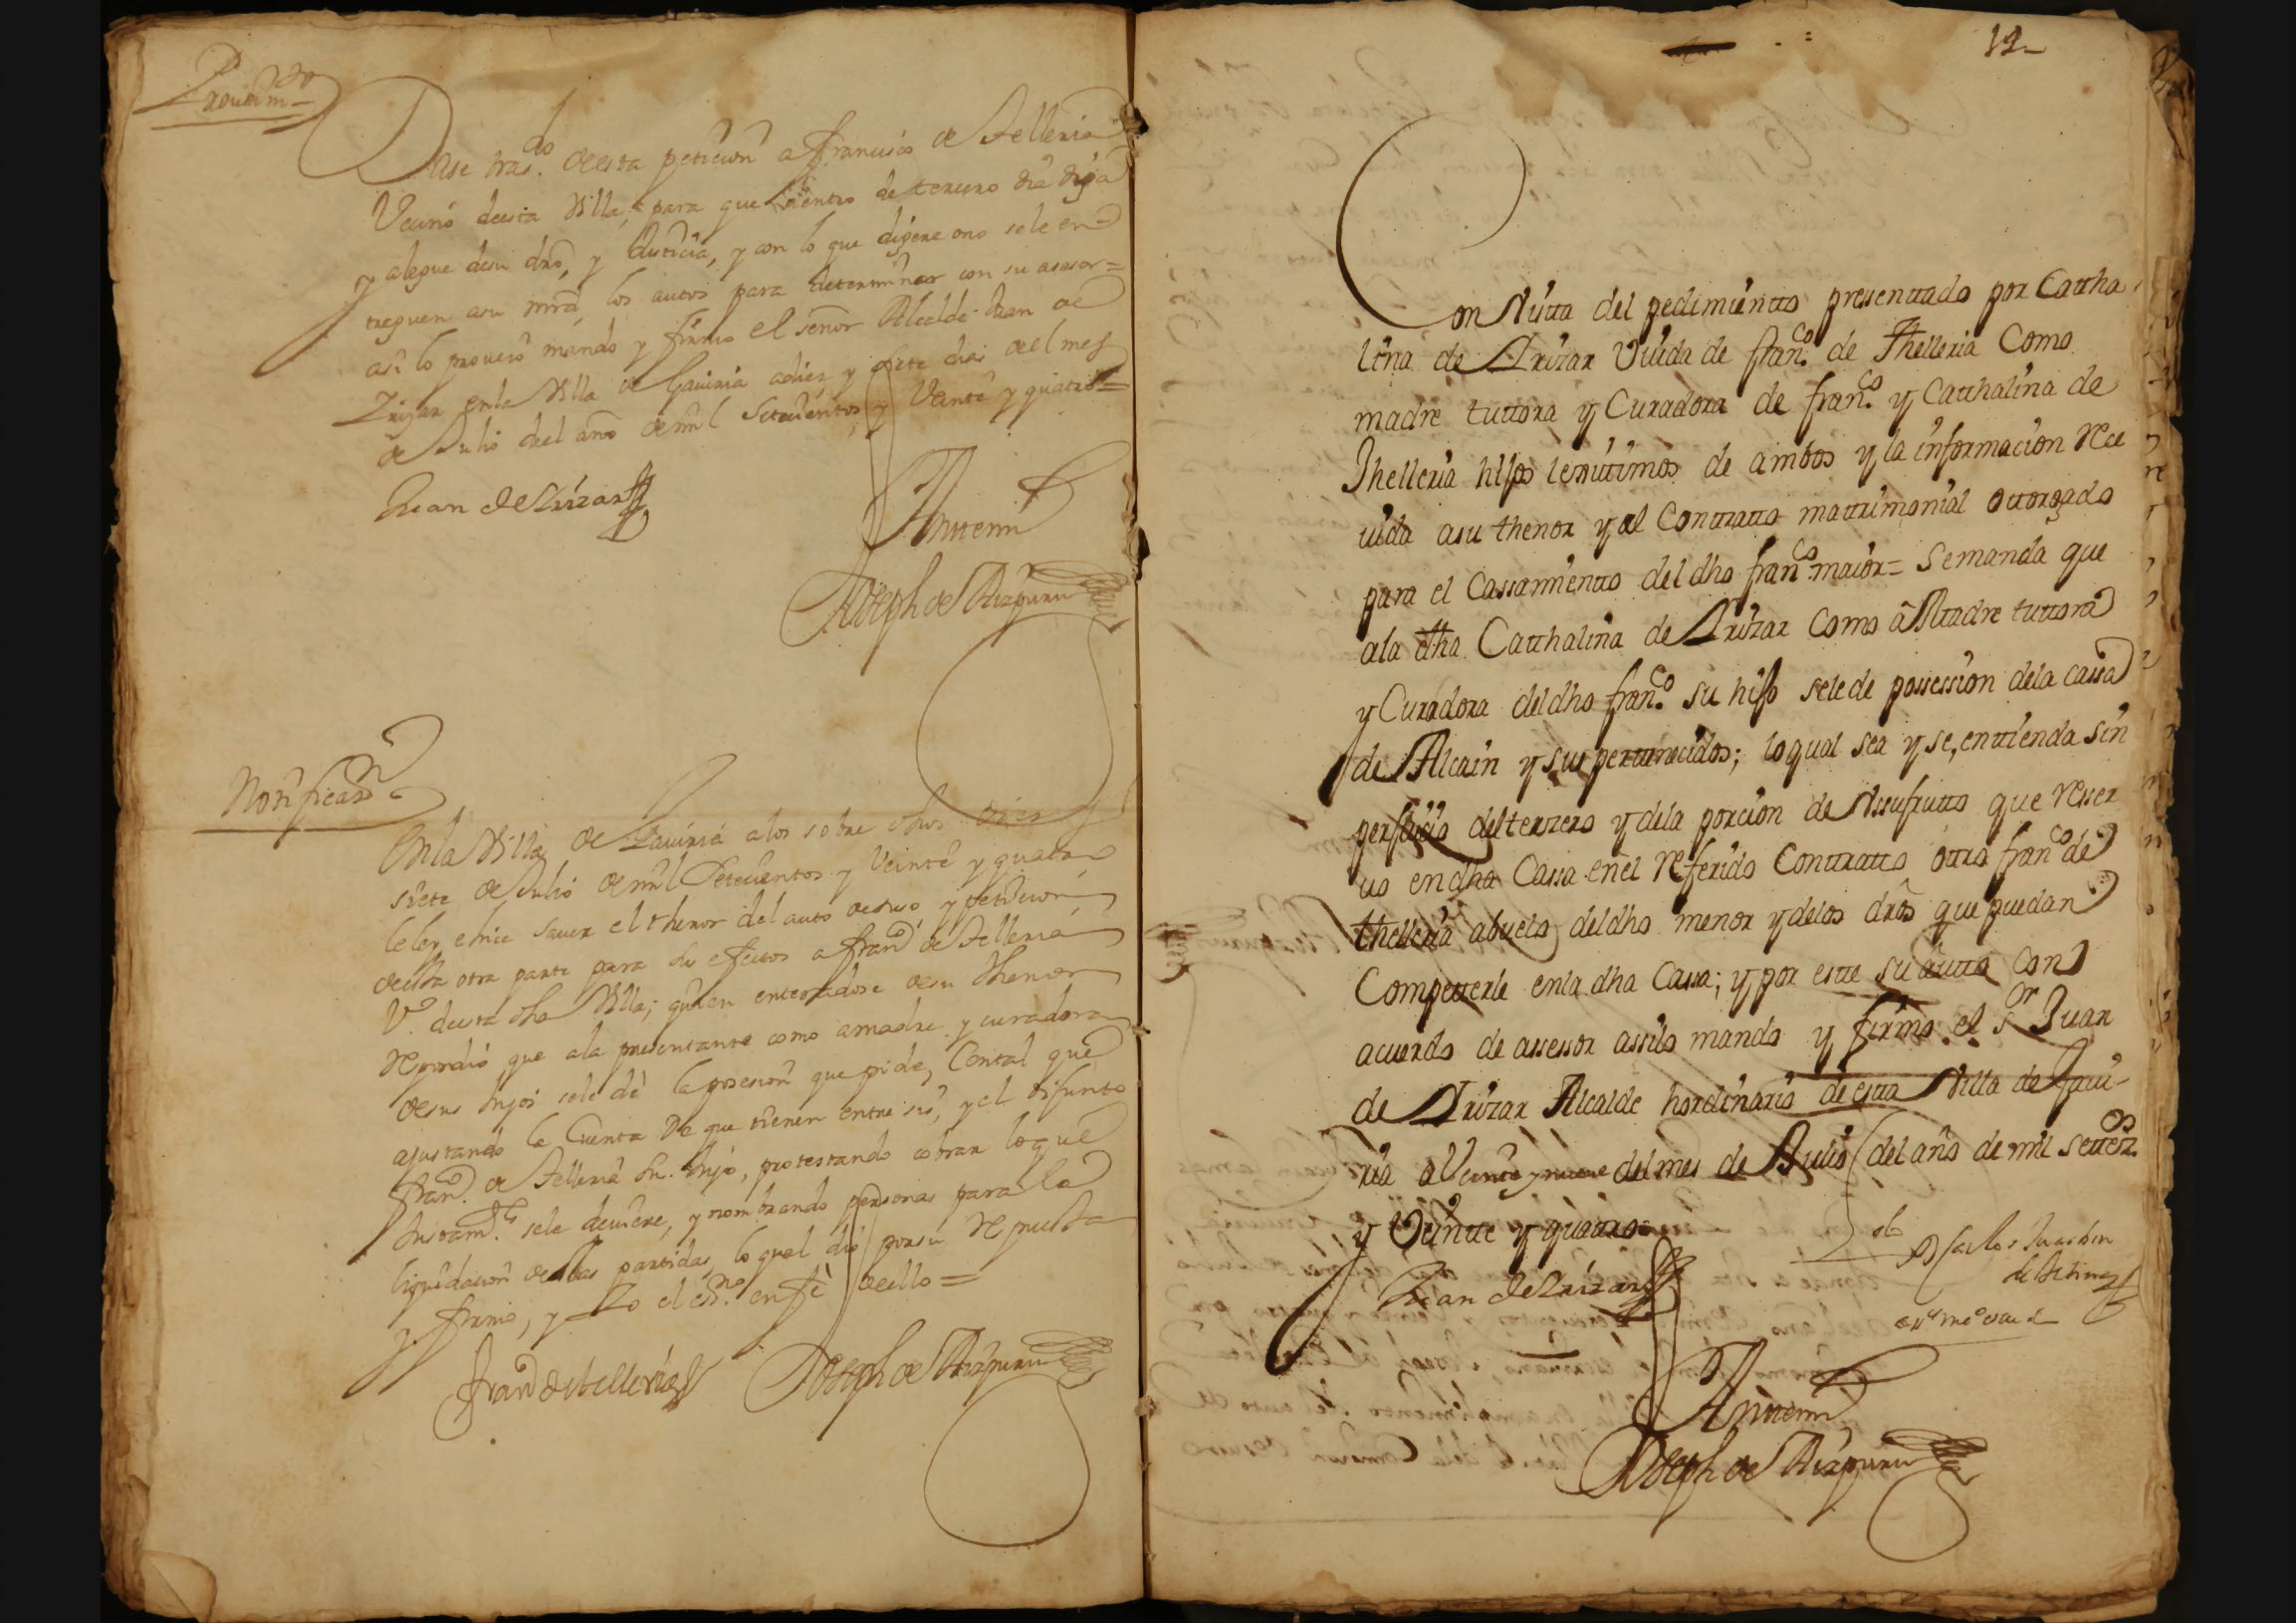 Proueim.to
Dase tras.do de esta petticion a francisco de Telleria
Vecino de esta Villa, para que dentro de tercero dia diga
y alegue de su dro, y Justicia, y con lo que digere o no se le en-
treguen a su mrd, los autos para determinar con su asesor=
asi lo proueio mando y firmo el señor Alcalde Juan de
Irizar en la Villa de Gauiria a diez y siete dias de el mes
de Julio de el año de mil Setecientos, y Veinte y quatro=
Juan de Irizar
Antemi
Joseph de Aizpuru
Notificaon
En la Villa de Gauiria a los sobre dhos diez y
siete de Julio de mil Setecientos y Veinte y quatro
le ley, e hice sauer el thenor del auto de suso, y peticion
de esta otra parte para sus efectos a fran.co de Telleria
V.o de esta dha Villa; quien enteradose de su thenor
respondió que a la presentante como a madre y curadora
de sus hijos se le dé la posesion que pide, Con tal que
ajustando la Cuenta de que tienen entre si, y el difunto
fran.co de Telleria su hijo, protestando cobrar lo que
Justam.te se le deuiere, y nombrando personas para la
liquidacion de dhas partidas, lo qual dió por su respuesta
y firmo, y Yo el ess.no en fè de ello=
Fran.co de telleria
Joseph de Aizpuru
12
Con Vista del pedimientto pressenttado por Cattha
lina de Irizar Viuda de fran.co de Thelleria Como
madre tuttora y Curadora de fran.co y Catthalina de
Thelleria hijos lexittimos de ambos y la informacion Rece
uida a su thenor y el Conttratto mattrimonial ottorgado
para el Cassamientto del dho fran.co maior= Se manda que
a la dha Catthalina de Irizar Como â Madre tuttora
y Curadora del dho fran.co su hijo se le de possession de la cassa
de Alcain y sus perttenecidos; lo qual sea y se, enttienda sin
perjuicio del terzero y de la porcion de Vssufrutto que Resser
uo en dha Cassa en el Referido Conttratto ôttro fran.co de
thelleria abuelo del dho menor y de los dros que puedan
Competterle en la dha Cassa; y por estte su âutto Con
acuerdo de assessor assi lo mando y firmo el s.or Juan
de Irizar Alcalde hordinario de estta Villa de Gaui-
ria a Veinte y nueve del mes de Julio del año de mil settez.os
y Veintte y quattro=
Juan de Irizar
Antemi
Joseph de Aizpuru